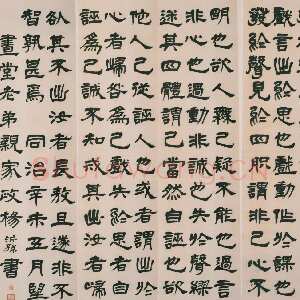 戲言出於思也戲動作於謀也
發於聲見於四肢謂非己心不
明也欲人無己疑不能也過言
非心也過動非誠也失於聲繆
迷其四體謂己當然自誣也欲
他人己從誣人也或者謂出於
心者歸咎為己戲失於思者自
誣為己誠不知戒其出汝者歸
咎其不出汝者長敖且遂非不
智孰甚焉 同治辛未五月望
書堂老弟親家政 楊沂孫書